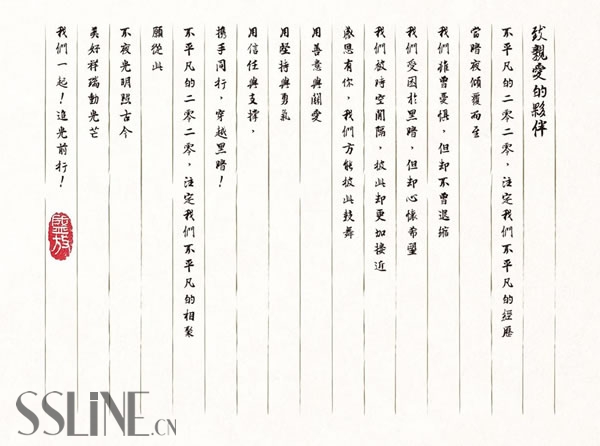 致親愛的夥伴
不平凡的二零二零，注定我們不平凡的經歷
當暗夜傾覆而至
我們雖曾憂懼，但却不曾退縮
我們受困於黑暗，但却心懷希望
我們被時空間隔，彼此却更加接近
感恩有你，我們方能彼此鼓舞
用善意與關愛
用堅持與勇氣
用信任與支撐，
攜手同行，穿越黑暗！
不平凡的二零二零，注定我們不平凡的相聚
願從此
不寂光明照古今
美好祥瑞動光芒
我們一起！追光前行！
盛放
SSLINE.CN